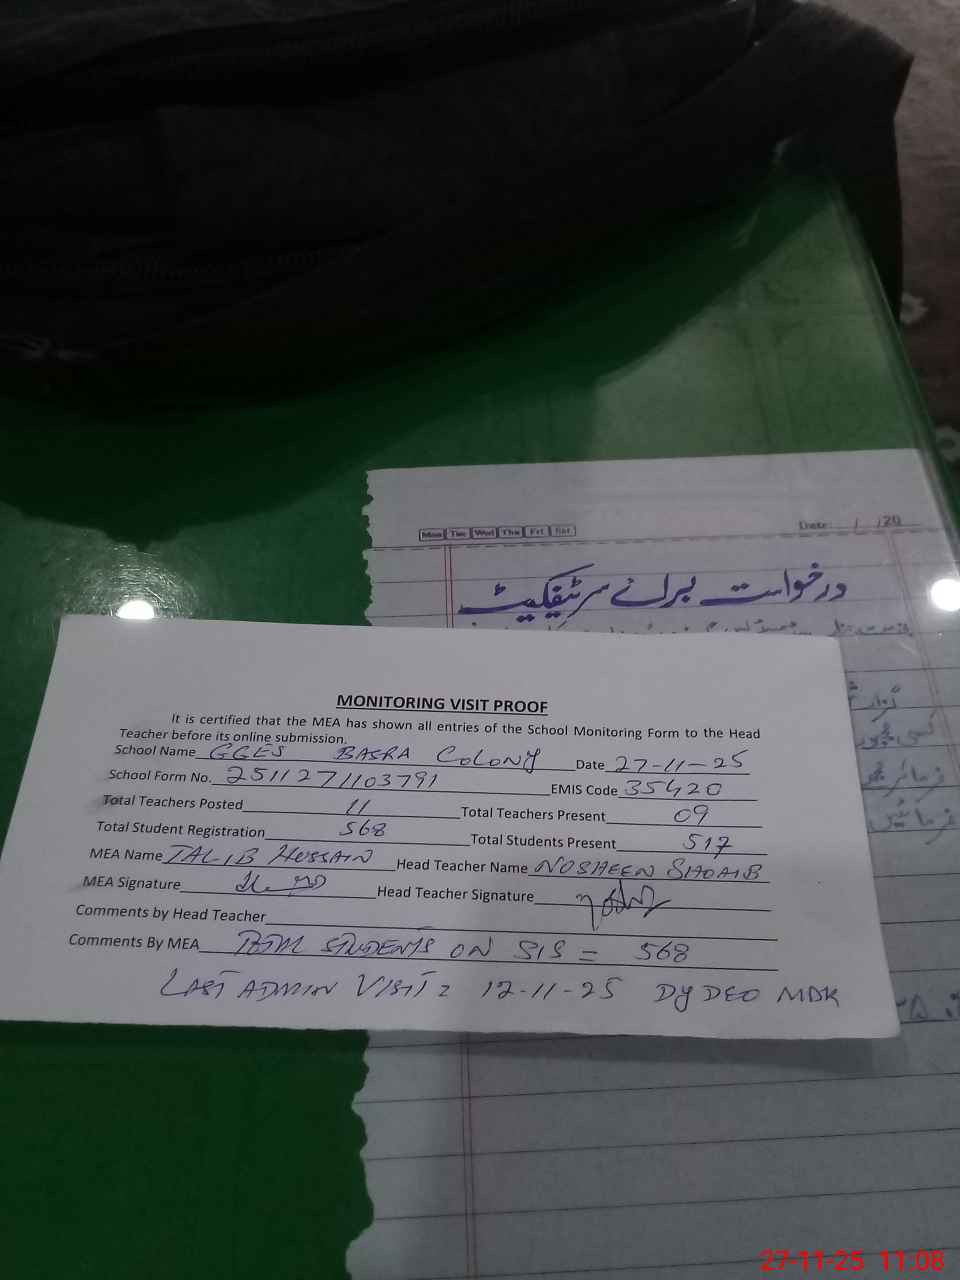 Mon Tue Wed Thu Fri Sat
Date: / /20
درخواست برائے سرٹیفکیٹ
MONITORING VISIT PROOF
It is certified that the MEA has shown all entries of the School Monitoring Form to the Head
Teacher before its online submission.
School Name GGES BASRA COLONY Date 27-11-25
School Form No. 2511271103791 EMIS Code 35420
Total Teachers Posted 11 Total Teachers Present 09
Total Student Registration 568 Total Students Present 517
MEA Name TALIB HUSSAIN Head Teacher Name NOSHEEN SHOAIB
MEA Signature Head Teacher Signature
Comments by Head Teacher
Comments By MEA STUDENTS ON SIS = 568
LAST ADMIN VISIT: 12-11-25 DY DEO MBK
27-11-25 11:08